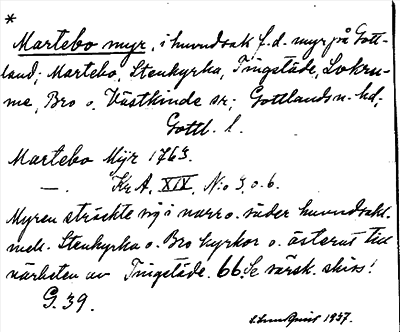 *
Martebo myr, i huvudsak f. d. myr på Gott-
land; Martebo, Stenkyrka, Tingstäde, Lokru-
me, Bro o. Västkinde sr; Gottlands n. hd;
Gottl. l.
Martebo Myr 1763.
—. Kr A. XIV, N:o 3, o. 6.
Myren sträckte sig i norr o. söder huvudsakl.
mell. Stenkyrka o. Bro kyrkor o. österut till
närheten av Tingstäde. 66. Se särsk. skiss!
G. 39.
1937.